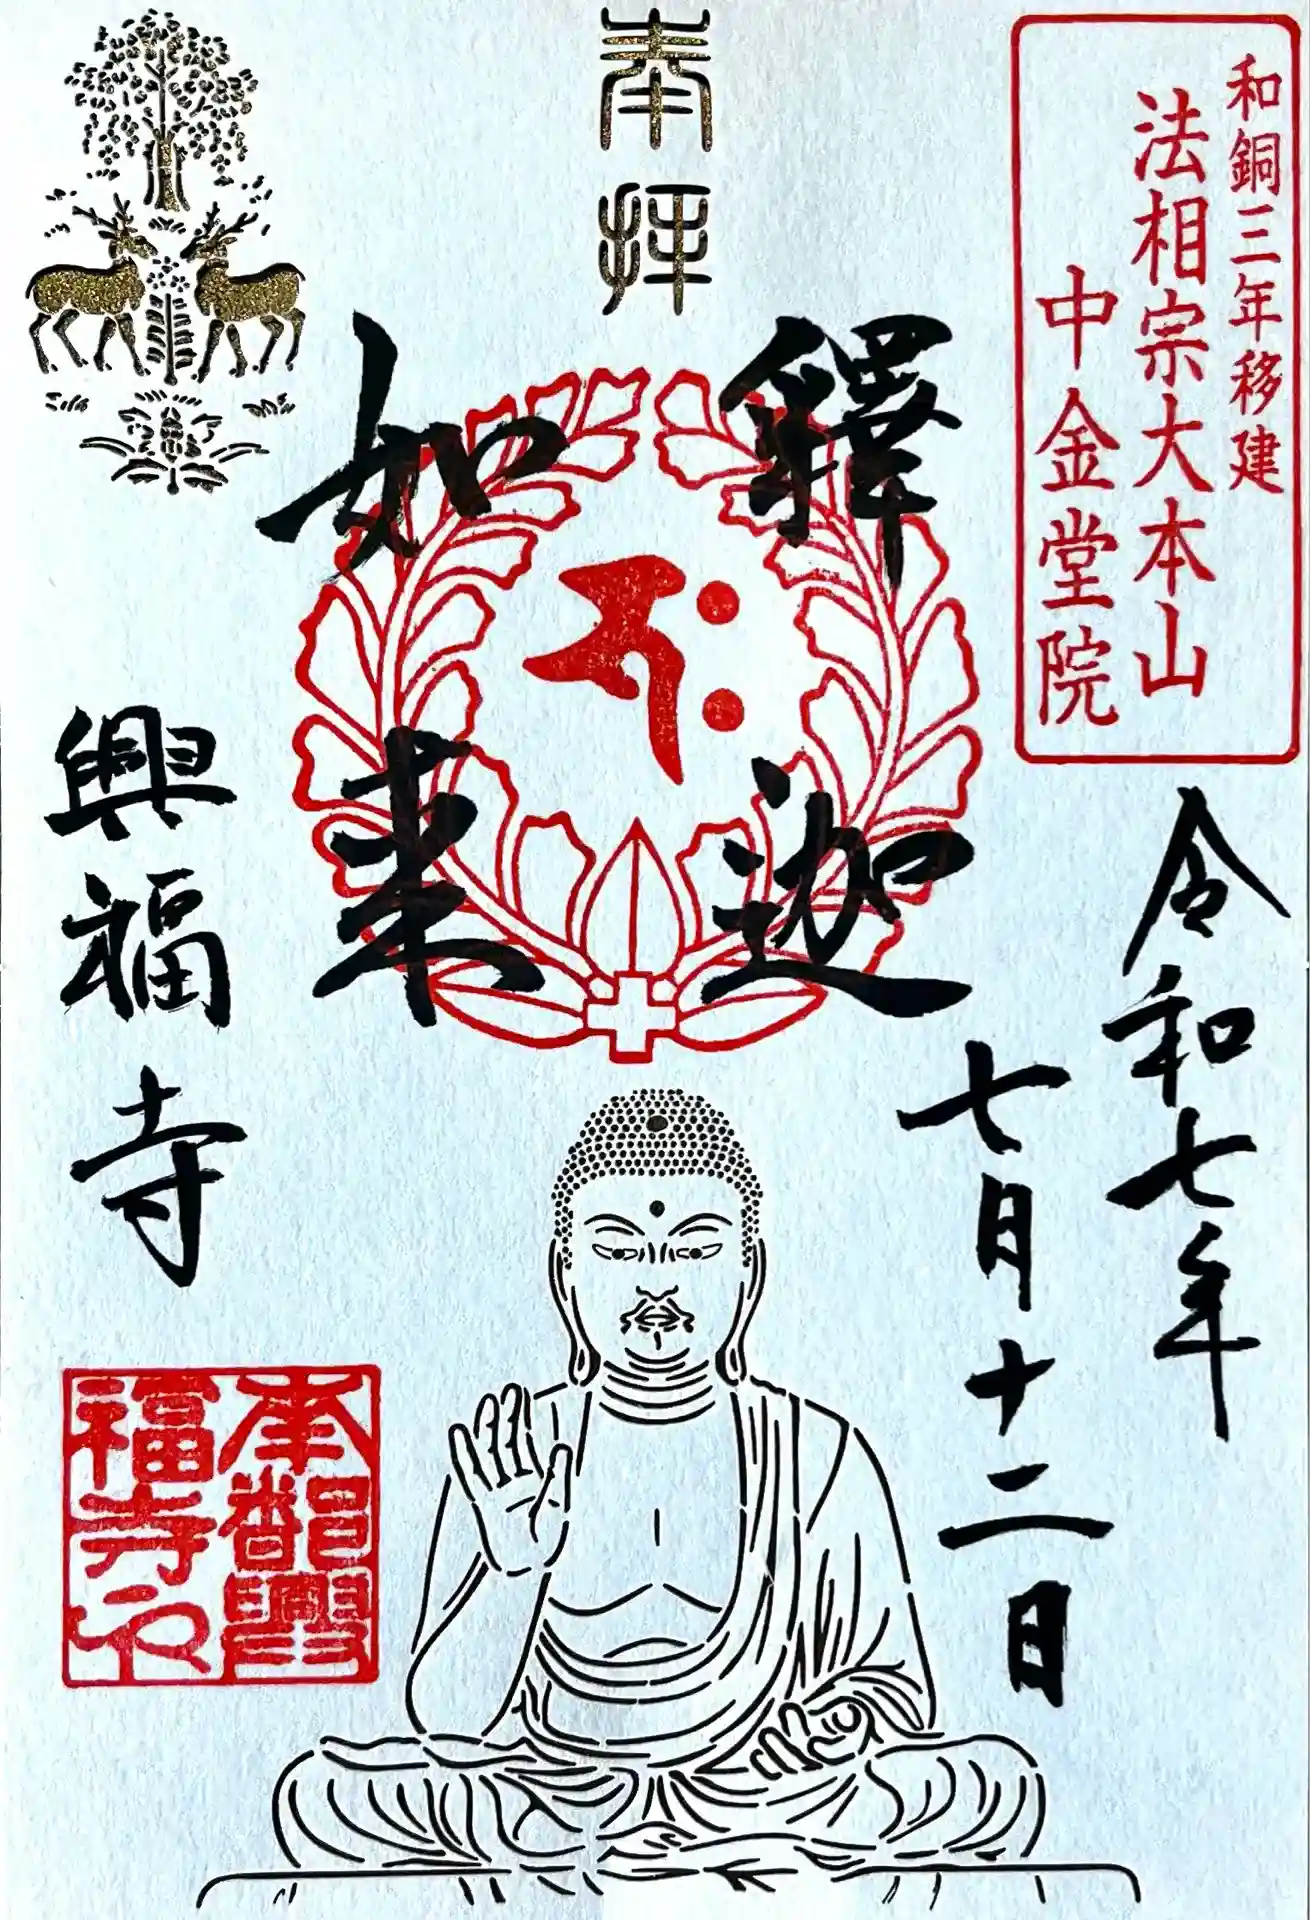 奉拝
和銅三年移建
法相宗大本山
中金堂院
釋迦
如来
令和七年
七月十二日
興福寺
南都興
福寺印